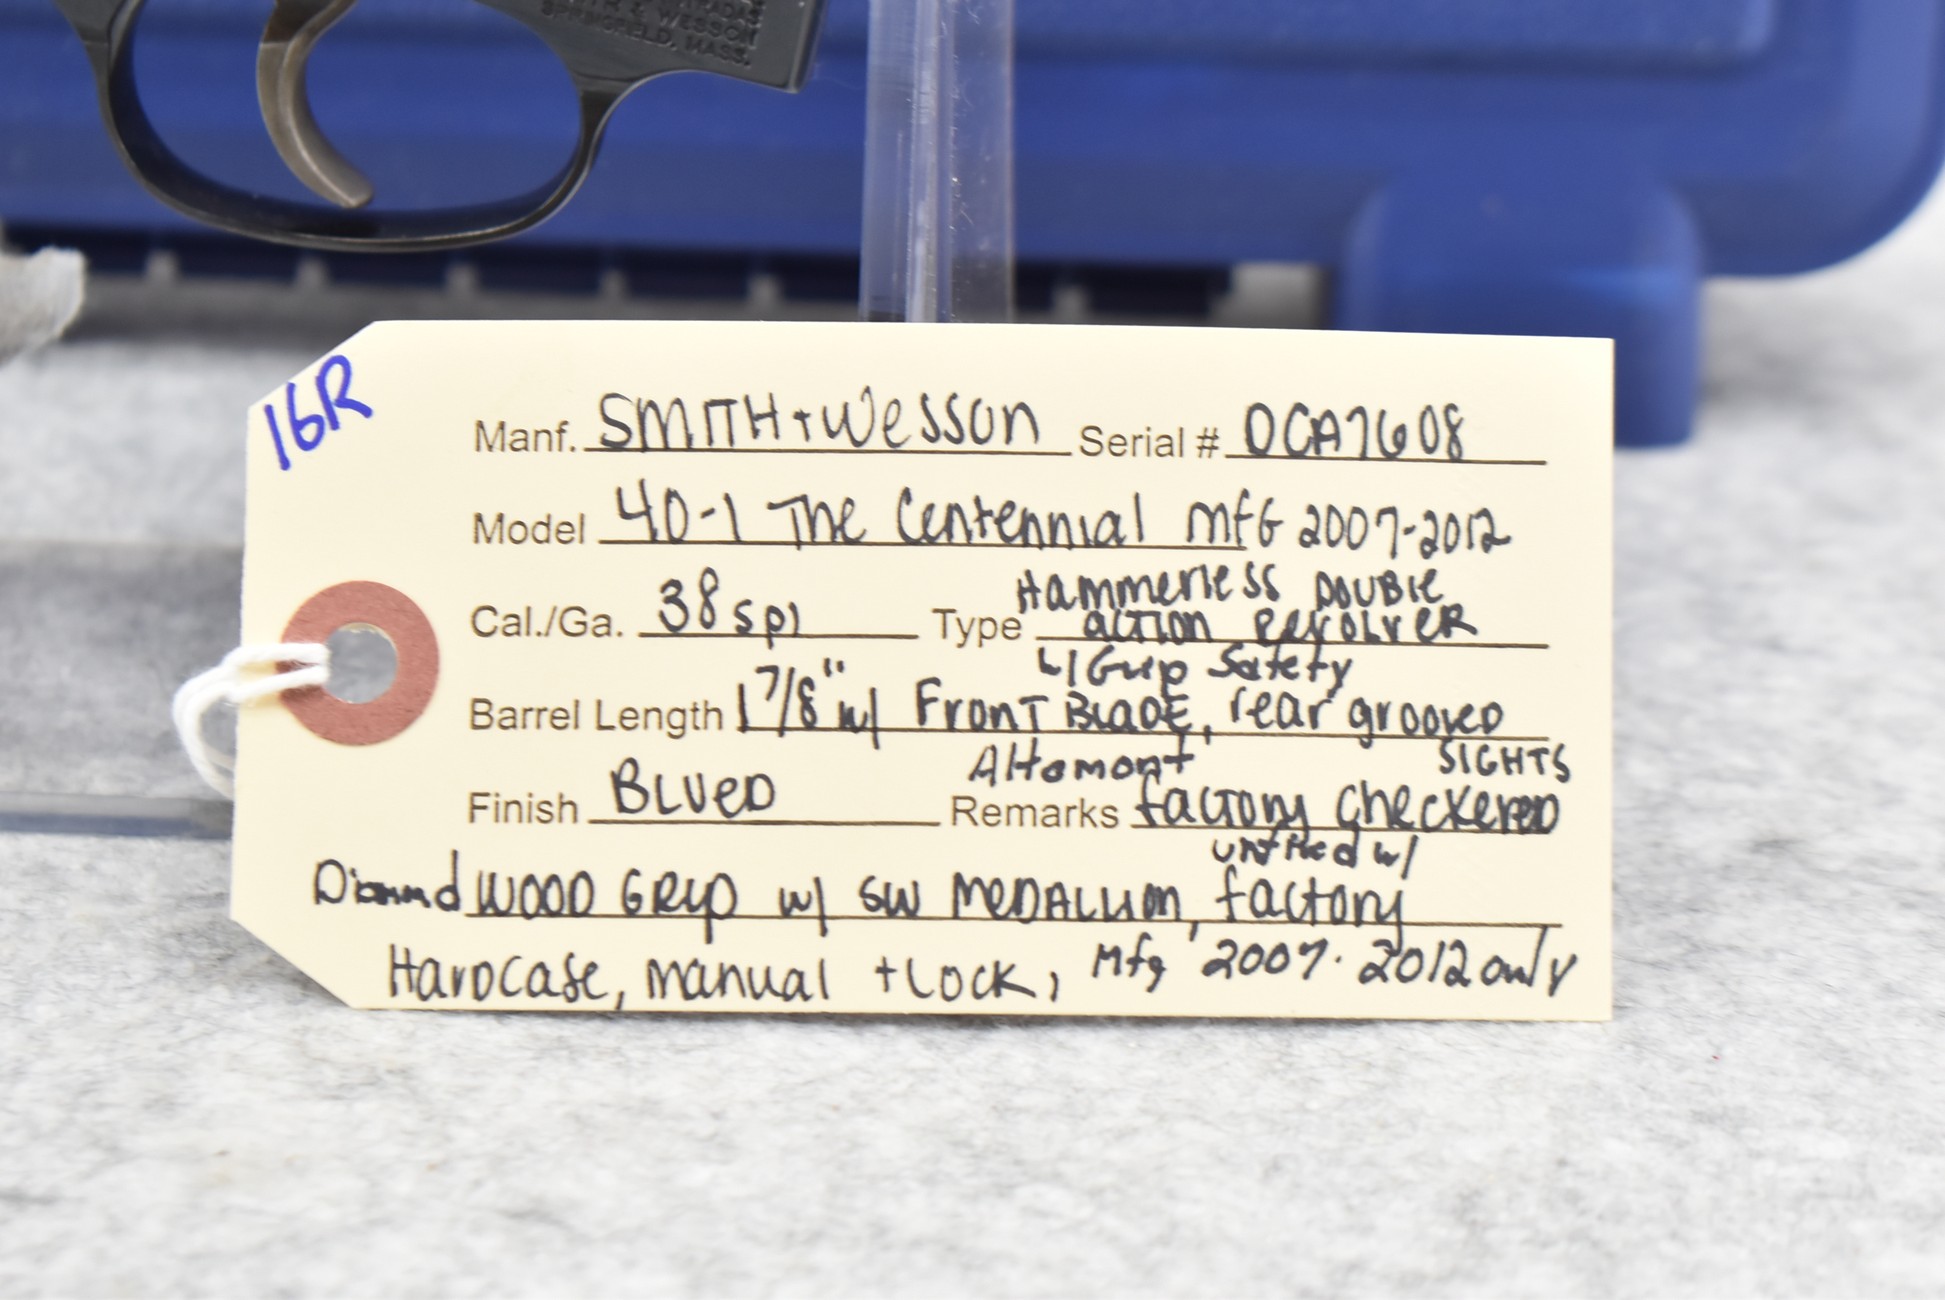 SMITH & WESSON
SPRINGFIELD, MASS.
16R
Manf. SMITH + Wesson Serial # DCA7608
Model 40-1 The Centennial MFG 2007-2012
Cal./Ga. 38 spl Type Hammerless DOUBLE
action REVOLVER
w/ Grip Safety
Barrel Length 1 7/8" w/ FRONT BLADE, rear grooved
SIGHTS
Finish BLUED Remarks Altamont factory checkered
Diamond WOOD GRIP w/ SW MEDALLION, unfired w/ factory
HARDCASE, manual + LOCK, Mfg 2007-2012 only